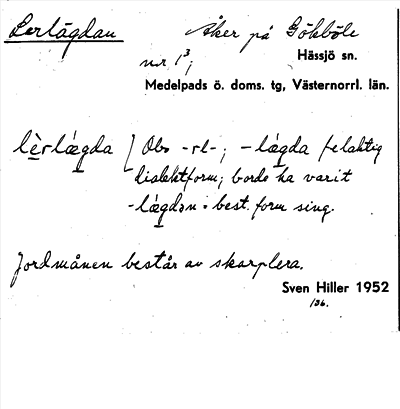 Lerlägdan Åker på Gökböle
nr 1³; Hässjö sn.
Medelpads ö. doms. tg, Västernorrl. län.
lèrlægda } Obs -rl-; -lægda felaktig
dialektform; borde ha varit
-lægdən = best. form sing.
Jordmånen består av skarplera.
Sven Hiller 1952
/36.